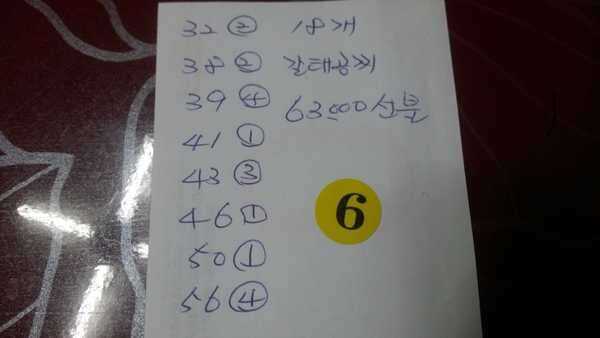 32 ② 18개
38 ② 갈태공찌
39 ④ 63,000 선불
41 ①
43 ③
46 ①
50 ①
56 ④
6